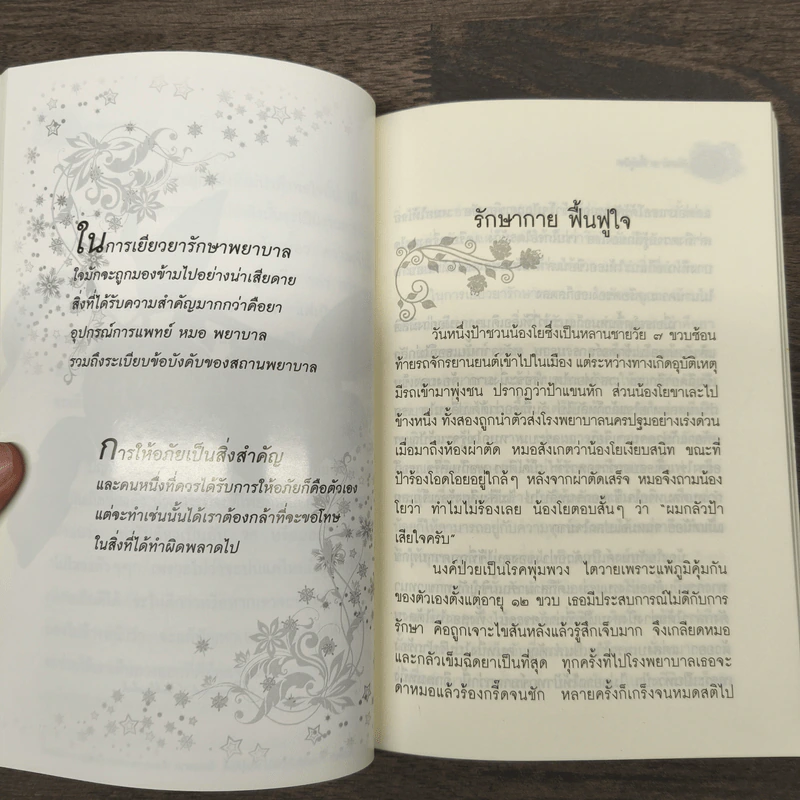 ในการเยียวยารักษาพยาบาล
ใจมักจะถูกมองข้ามไปอย่างน่าเสียดาย
สิ่งที่ได้รับความสำคัญมากกว่าคือยา
อุปกรณ์การแพทย์ หมอ พยาบาล
รวมถึงระเบียบข้อบังคับของสถานพยาบาล
การให้อภัยเป็นสิ่งสำคัญ
และคนหนึ่งที่ควรได้รับการให้อภัยก็คือตัวเอง
แต่จะทำเช่นนั้นได้เราต้องกล้าที่จะขอโทษ
ในสิ่งที่ได้ทำผิดพลาดไป
รักษากาย ฟื้นฟูใจ
วันหนึ่งป้าชวนน้องโยซึ่งเป็นหลานชายวัย ๗ ขวบซ้อน
ท้ายรถจักรยานยนต์เข้าไปในเมือง แต่ระหว่างทางเกิดอุบัติเหตุ
มีรถเข้ามาพุ่งชน ปรากฏว่าป้าแขนหัก ส่วนน้องโยขาเละไป
ข้างหนึ่ง ทั้งสองถูกนำตัวส่งโรงพยาบาลนครปฐมอย่างเร่งด่วน
เมื่อมาถึงห้องผ่าตัด หมอสังเกตว่าน้องโยเงียบสนิท ขณะที่
ป้าร้องโอดโอยอยู่ใกล้ๆ หลังจากผ่าตัดเสร็จ หมอจึงถามน้อง
โยว่า ทำไมไม่ร้องเลย น้องโยตอบสั้นๆ ว่า “ผมกลัวป้า
เสียใจครับ”
นงค์ป่วยเป็นโรคพุ่มพวง ไตวายเพราะแพ้ภูมิคุ้มกัน
ของตัวเองตั้งแต่อายุ ๑๒ ขวบ เธอมีประสบการณ์ไม่ดีกับการ
รักษา คือถูกเจาะไขสันหลังแล้วรู้สึกเจ็บมาก จึงเกลียดหมอ
และกลัวเข็มฉีดยาเป็นที่สุด ทุกครั้งที่ไปโรงพยาบาลเธอจะ
ด่าหมอแล้วร้องกรี๊ดจนชัก หลายครั้งก็เกร็งจนหมดสติไป